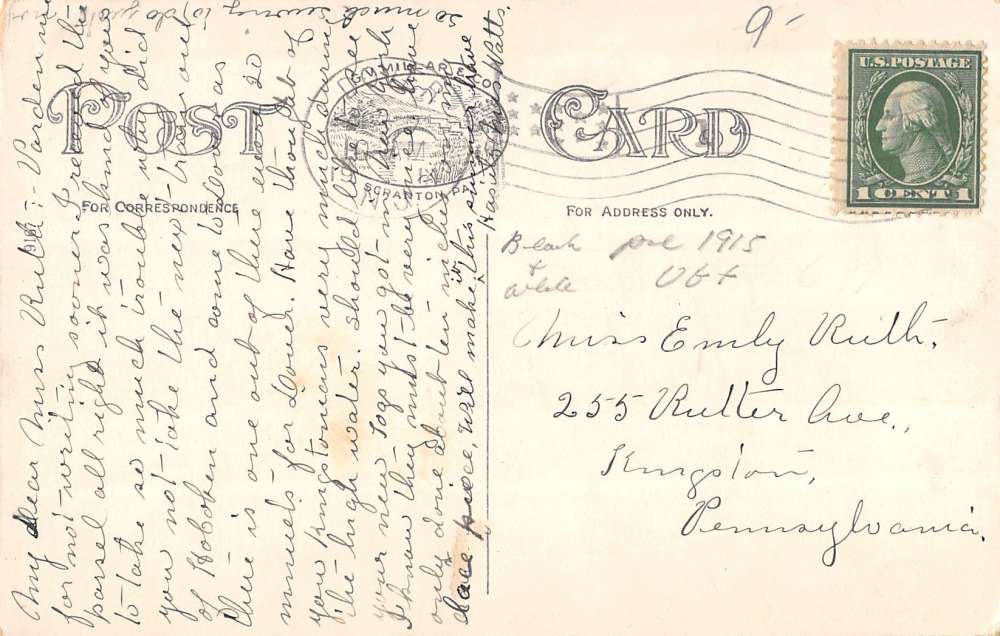 9-
POST CARD
G.V. MILLAR & CO.
SCRANTON PA.
U.S. POSTAGE
1 CENT 1
FOR CORRESPONDENCE
FOR ADDRESS ONLY.
Black + white
pre 1915
Miss Emily Ruth,
255 Rutter Ave.,
Kingston,
Pennsylvania.
My dear Miss Ruth:- Pardon me
for not writing sooner. I received the
parsel all right it was kind of you
to take so much trouble why did
you not take the next train out
of Hoboken and come to Dover as
there is one out of there every 20
minuets for Dover. Have thought of
you Kingstonians very much during
the high water. Should like to see
your new togs you got in New York
I know they must be very nice. Have
only done about ten inches on my
lace piece, will make it this summer
so much sewing to do